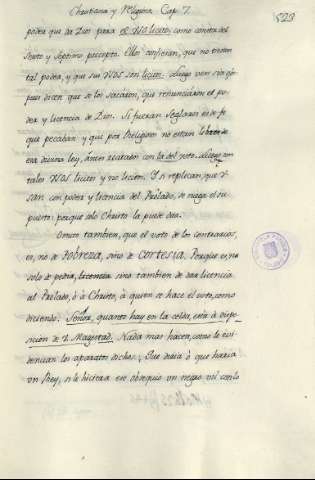 Christiana y Religiosa Cap. 7.
523
poder que da Dios para el uso licito; como consta del
Sexto y Septimo precepto. Ellos confiesan, que no tienen
tal poder, y que sus usos son licitos: luego
pues dicen que se los sacaron, que renunciaron el po-
der y licencia de Dios. Si fueran Seglares es de fe
que pecaban y que por Religiosos no estan
esa divina ley, antes
tales usos licitos y no licitos. Y si replican, que
san con poder y licencia del Prelado, se niega el su-
puesto: porque solo Christo la puede dar.
Omito tambien, que el voto de los contrarios,
es, no de Pobreza, sino de Cortesia. Porque es, no
solo de pedir, licencia sino tambien de dar licencia
al Prelado, ò à Christo, à quien se hace el voto, como
diciendo: Señor, quanto hay en la celda, està à dispo-
sición de V. Magestad. Nada mas hacen, como lo evi-
dencian los aparatos dichos; Que diria ò que haria
un Rey, si le hiciera ese obsequio un negro vil con lo